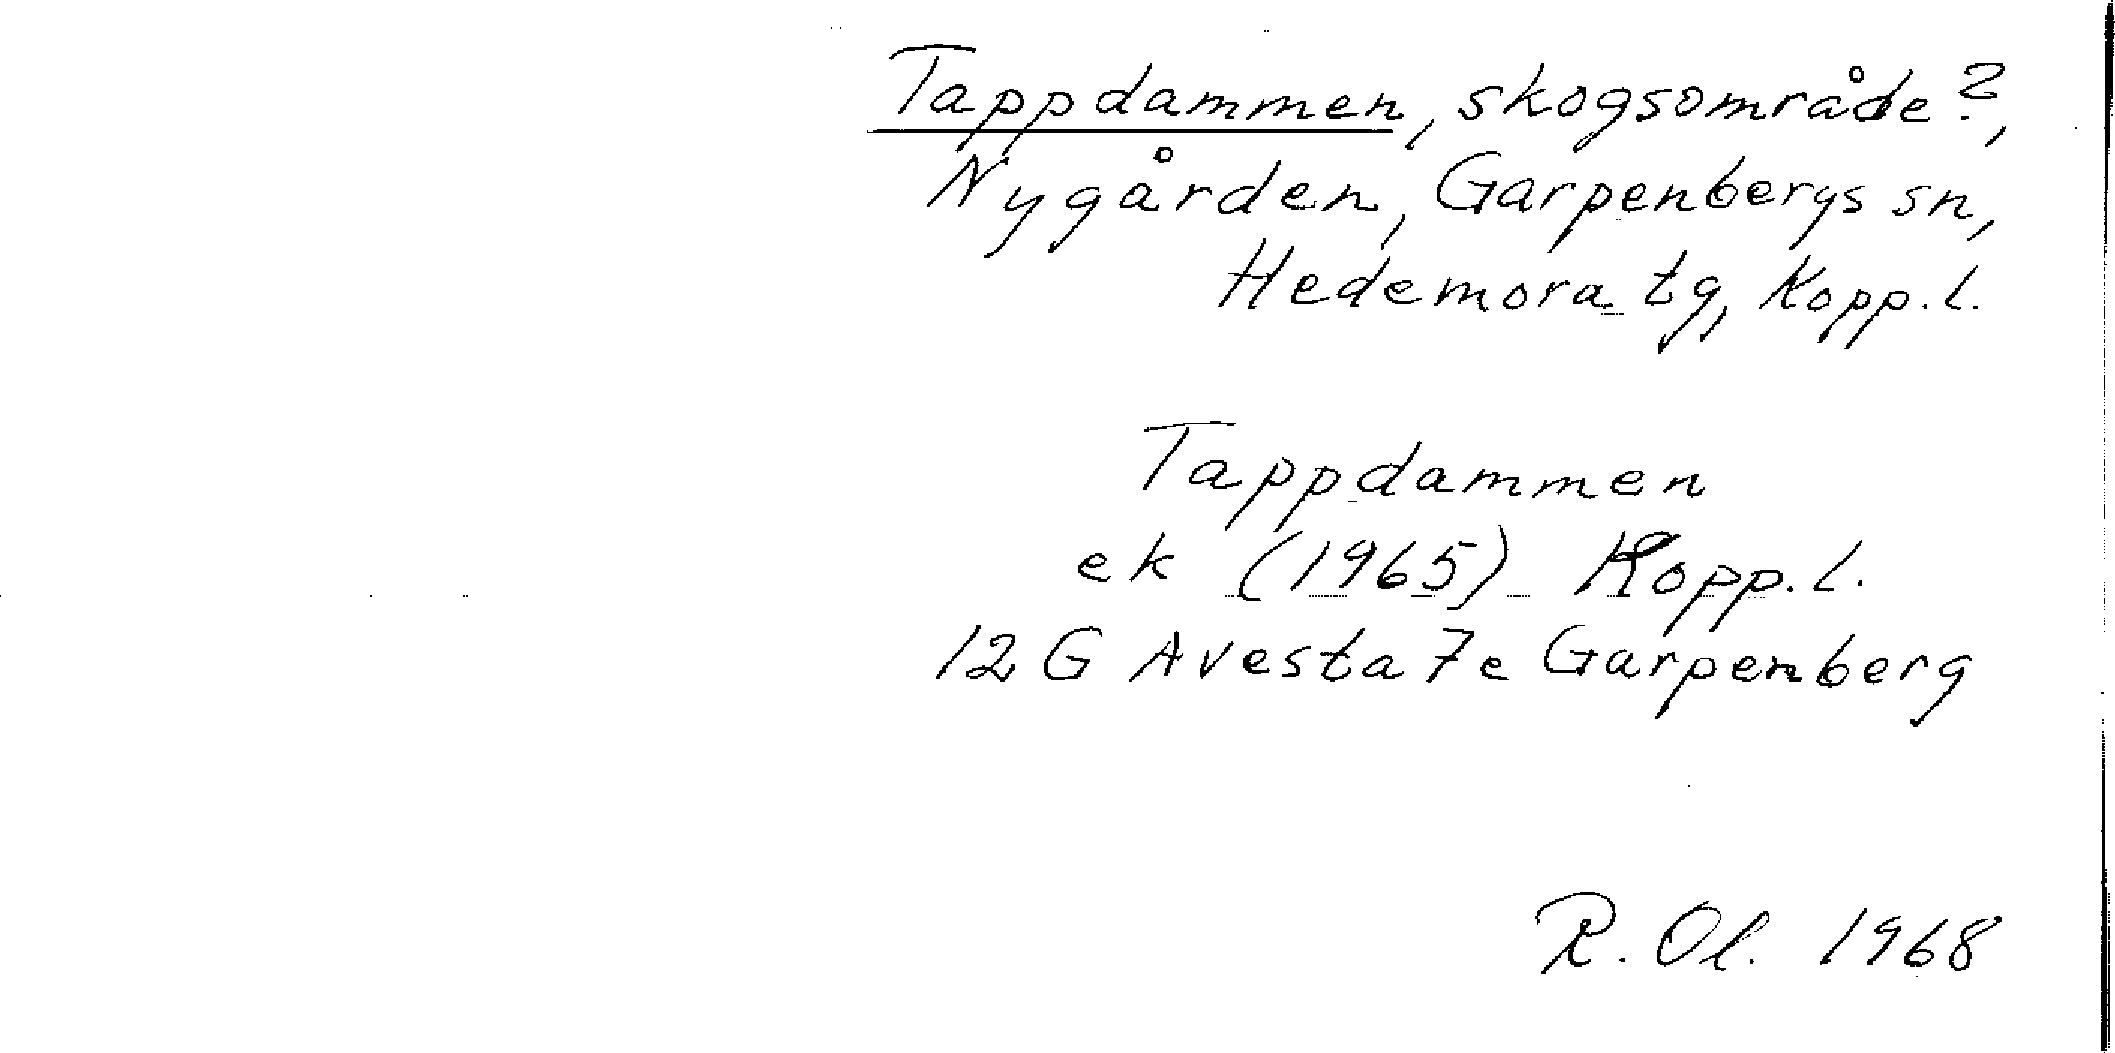 Tappdammen, skogsområde?,
Nygården, Garpenbergs sn,
Hedemora tg, Kopp.l.
Tappdammen
ek (1965) Kopp.l.
12 G Avesta 7e Garpenberg
R. Ol. 1968